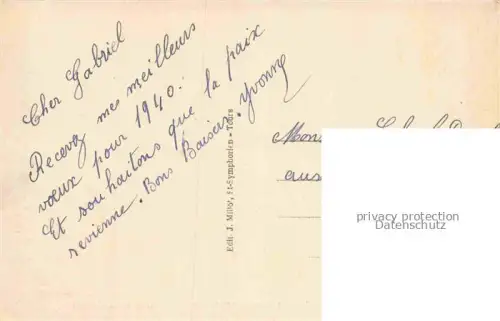 Cher Gabriel
Recevez mes meilleurs
vœux pour 1940.
Et souhaitons que la paix
revienne. Bons Baisers. Yvonne
Edit. J. Millot, St-Symphorien - Tours
Mons
aux
privacy protection
Datenschutz